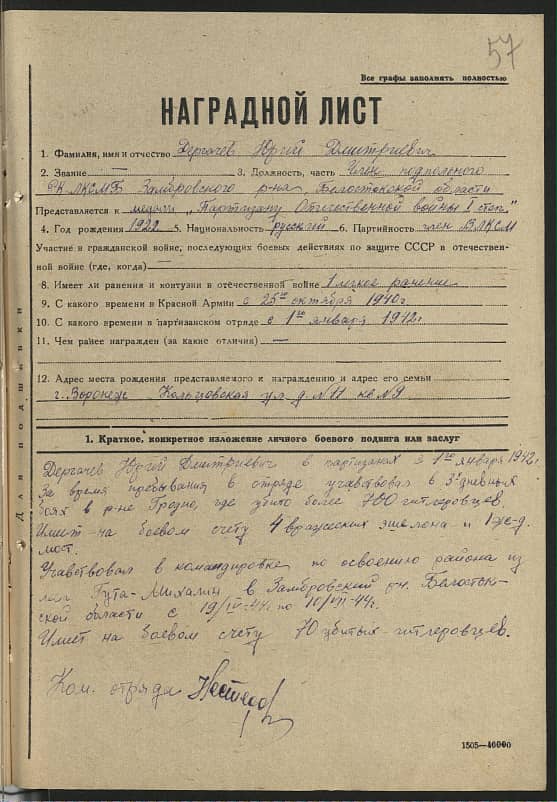 57
Все графы заполнять полностью
НАГРАДНОЙ ЛИСТ
1. Фамилия, имя и отчество Дергачев Юрий Дмитриевич
2. Звание — 3. Должность, часть Член подпольного
РК ЛКСМБ Замбровского р-на Белостокской области
Представляется к медали "Партизану Отечественной войны I степ."
4. Год рождения 1922 5. Национальность русский 6. Партийность член ВЛКСМ
Участие в гражданской войне, последующих боевых действиях по защите СССР в отечествен-
ной войне (где, когда) —
8. Имеет ли ранения и контузии в отечественной войне 1 легкое ранение
9. С какого времени в Красной Армии с 25го октября 1940г.
10. С какого времени в партизанском отряде с 1го января 1942г
11. Чем ранее награжден (за какие отличия) —
12. Адрес места рождения представляемого к награждению и адрес его семьи
г. Воронеж Кольцовская ул. д. №11 кв №9
Для подшивки
1. Краткое, конкретное изложение личного боевого подвига или заслуг
Дергачев Юрий Дмитриевич в партизанах с 1го января 1942г.
За время пребывания в отряде участвовал в 3х дневных
боях в р-не Гродно, где убито более 700 гитлеровцев.
Имеет на боевом счету 4 вражеских эшелона и 1 ж-д.
мост.
Участвовал в командировке по освоению района из
Гута-Михалин в Замбровский Белосток-
ской области с 19/IV-44г по 10/VII-44г.
Имеет на боевом счету 70 убитых гитлеровцев.
Ком. отряда
1505—40000